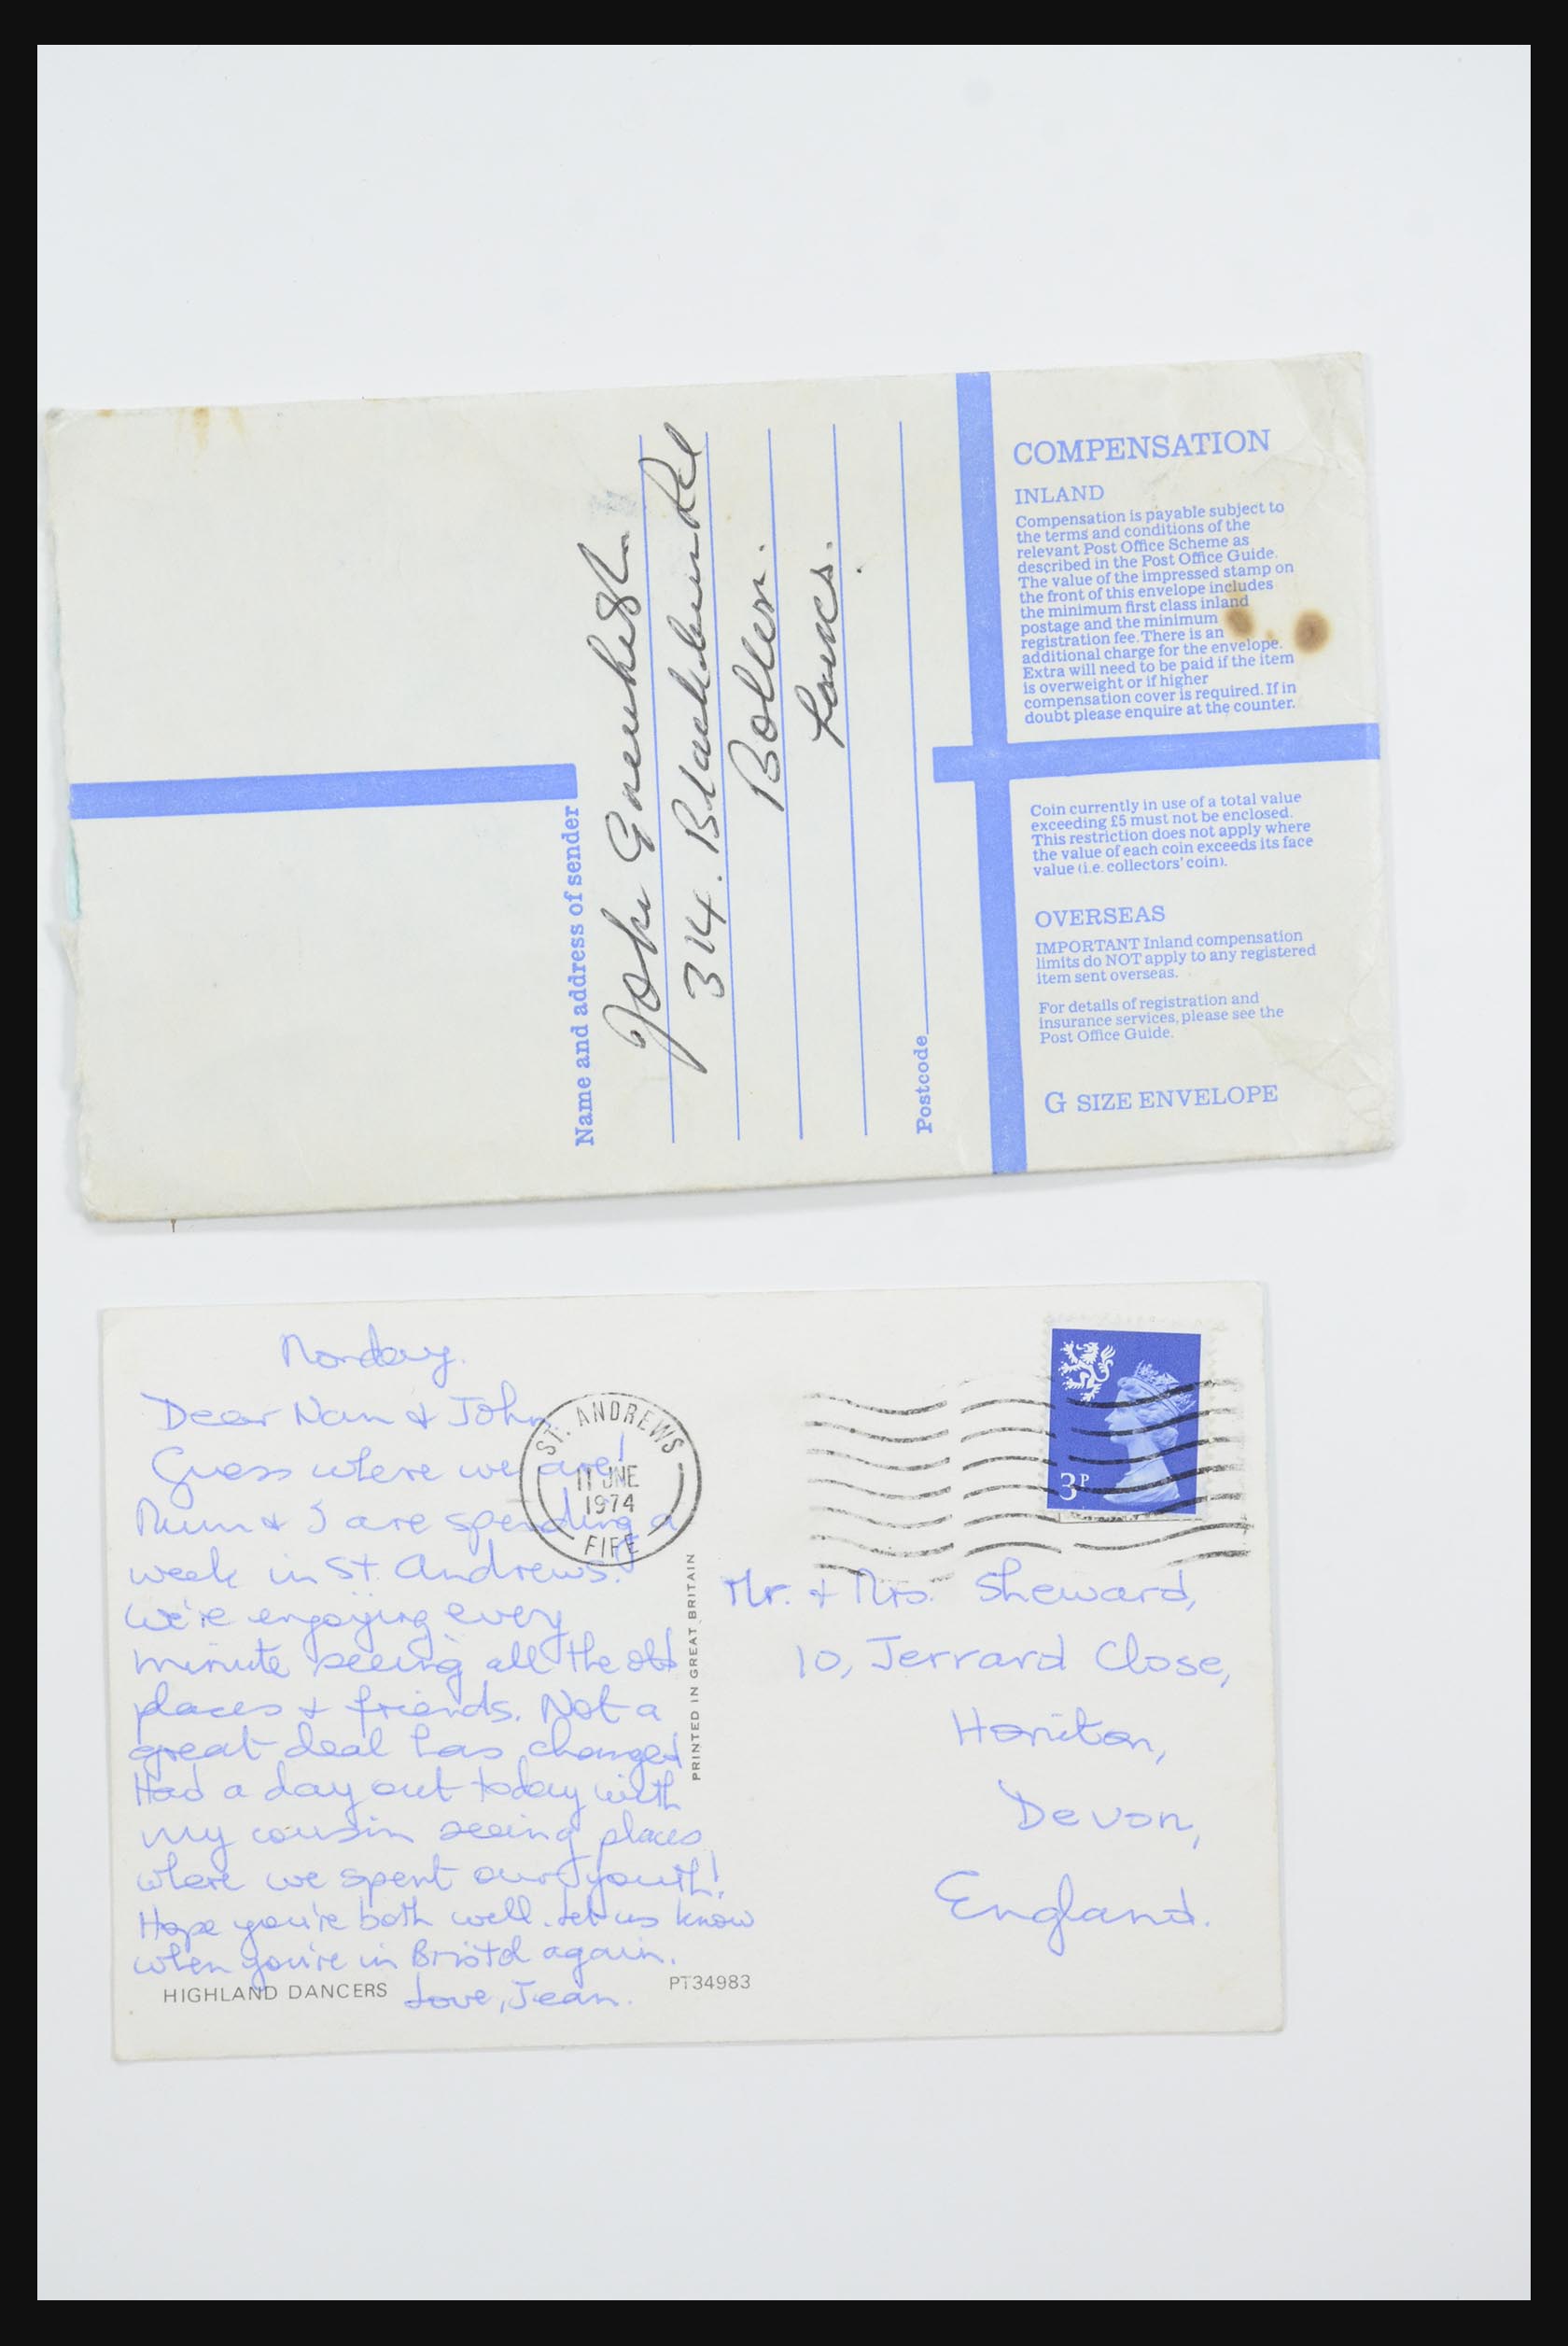 COMPENSATION
INLAND
Compensation is payable subject to
the terms and conditions of the
relevant Post Office Scheme as
described in the Post Office Guide.
The value of the impressed stamp on
the front of this envelope includes
the minimum first class inland
postage and the minimum
registration fee. There is an
additional charge for the envelope.
Extra will need to be paid if the item
is overweight or if higher
compensation cover is required. If in
doubt please enquire at the counter.
Coin currently in use of a total value
exceeding £5 must not be enclosed.
This restriction does not apply where
the value of each coin exceeds its face
value (i.e. collectors' coin).
OVERSEAS
IMPORTANT Inland compensation
limits do NOT apply to any registered
item sent overseas.
For details of registration and
insurance services, please see the
Post Office Guide.
G SIZE ENVELOPE
Name and address of sender
John
314. Blackburn Rd
Bolton.
Lancs.
Postcode
Monday.
Dear Nan & John,
Guess where we are!
Mum & I are spending a
week in St. Andrews.
We're enjoying every
minute seeing all the old
places & friends. Not a
great deal has changed
Had a day out today with
my cousin seeing places
where we spent our youth!
Hope you're both well. Let us know
when you're in Bristol again.
Love, Jean.
HIGHLAND DANCERS
PT34983
PRINTED IN GREAT BRITAIN
ST. ANDREWS
11 JNE
1974
FIFE
3P
Mr. & Mrs. Sheward,
10, Jerrard Close,
Honiton,
Devon,
England.